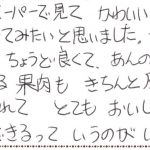 ーパーで見て かわいい
てみたいと思いました。
ちょうど良くて、あんの
る 果肉も きちんと
れて とても おいし
できるって いうのが い